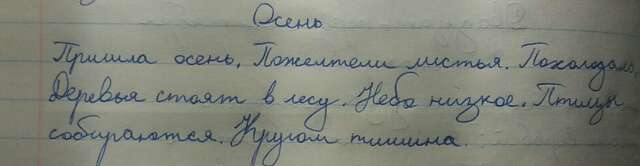 Осень
Пришла осень. Пожелтели листья. Похолодало.
Деревья стоят в лесу. Небо низкое. Птицы
собираются. Кругом тишина.